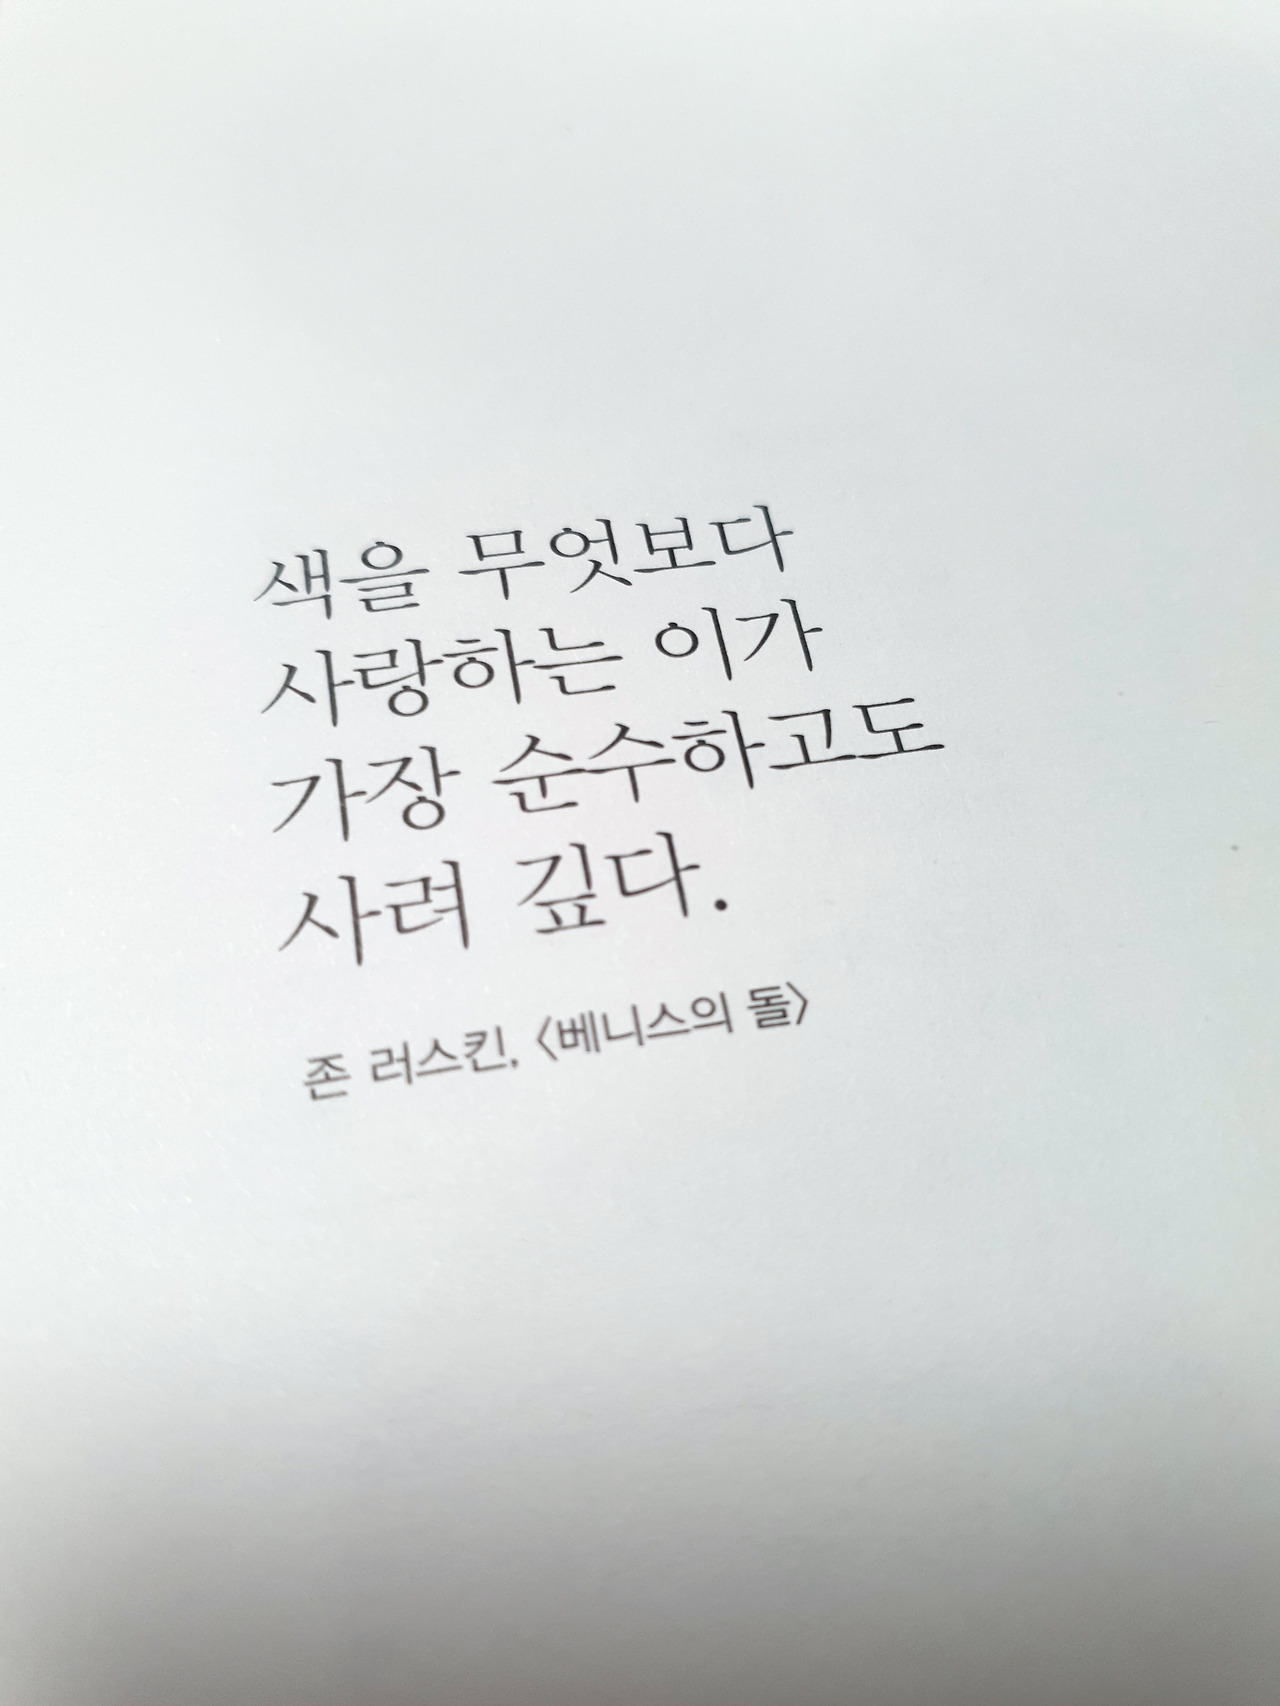 색을 무엇보다
사랑하는 이가
가장 순수하고도
사려 깊다.
존 러스킨, 〈베니스의 돌〉